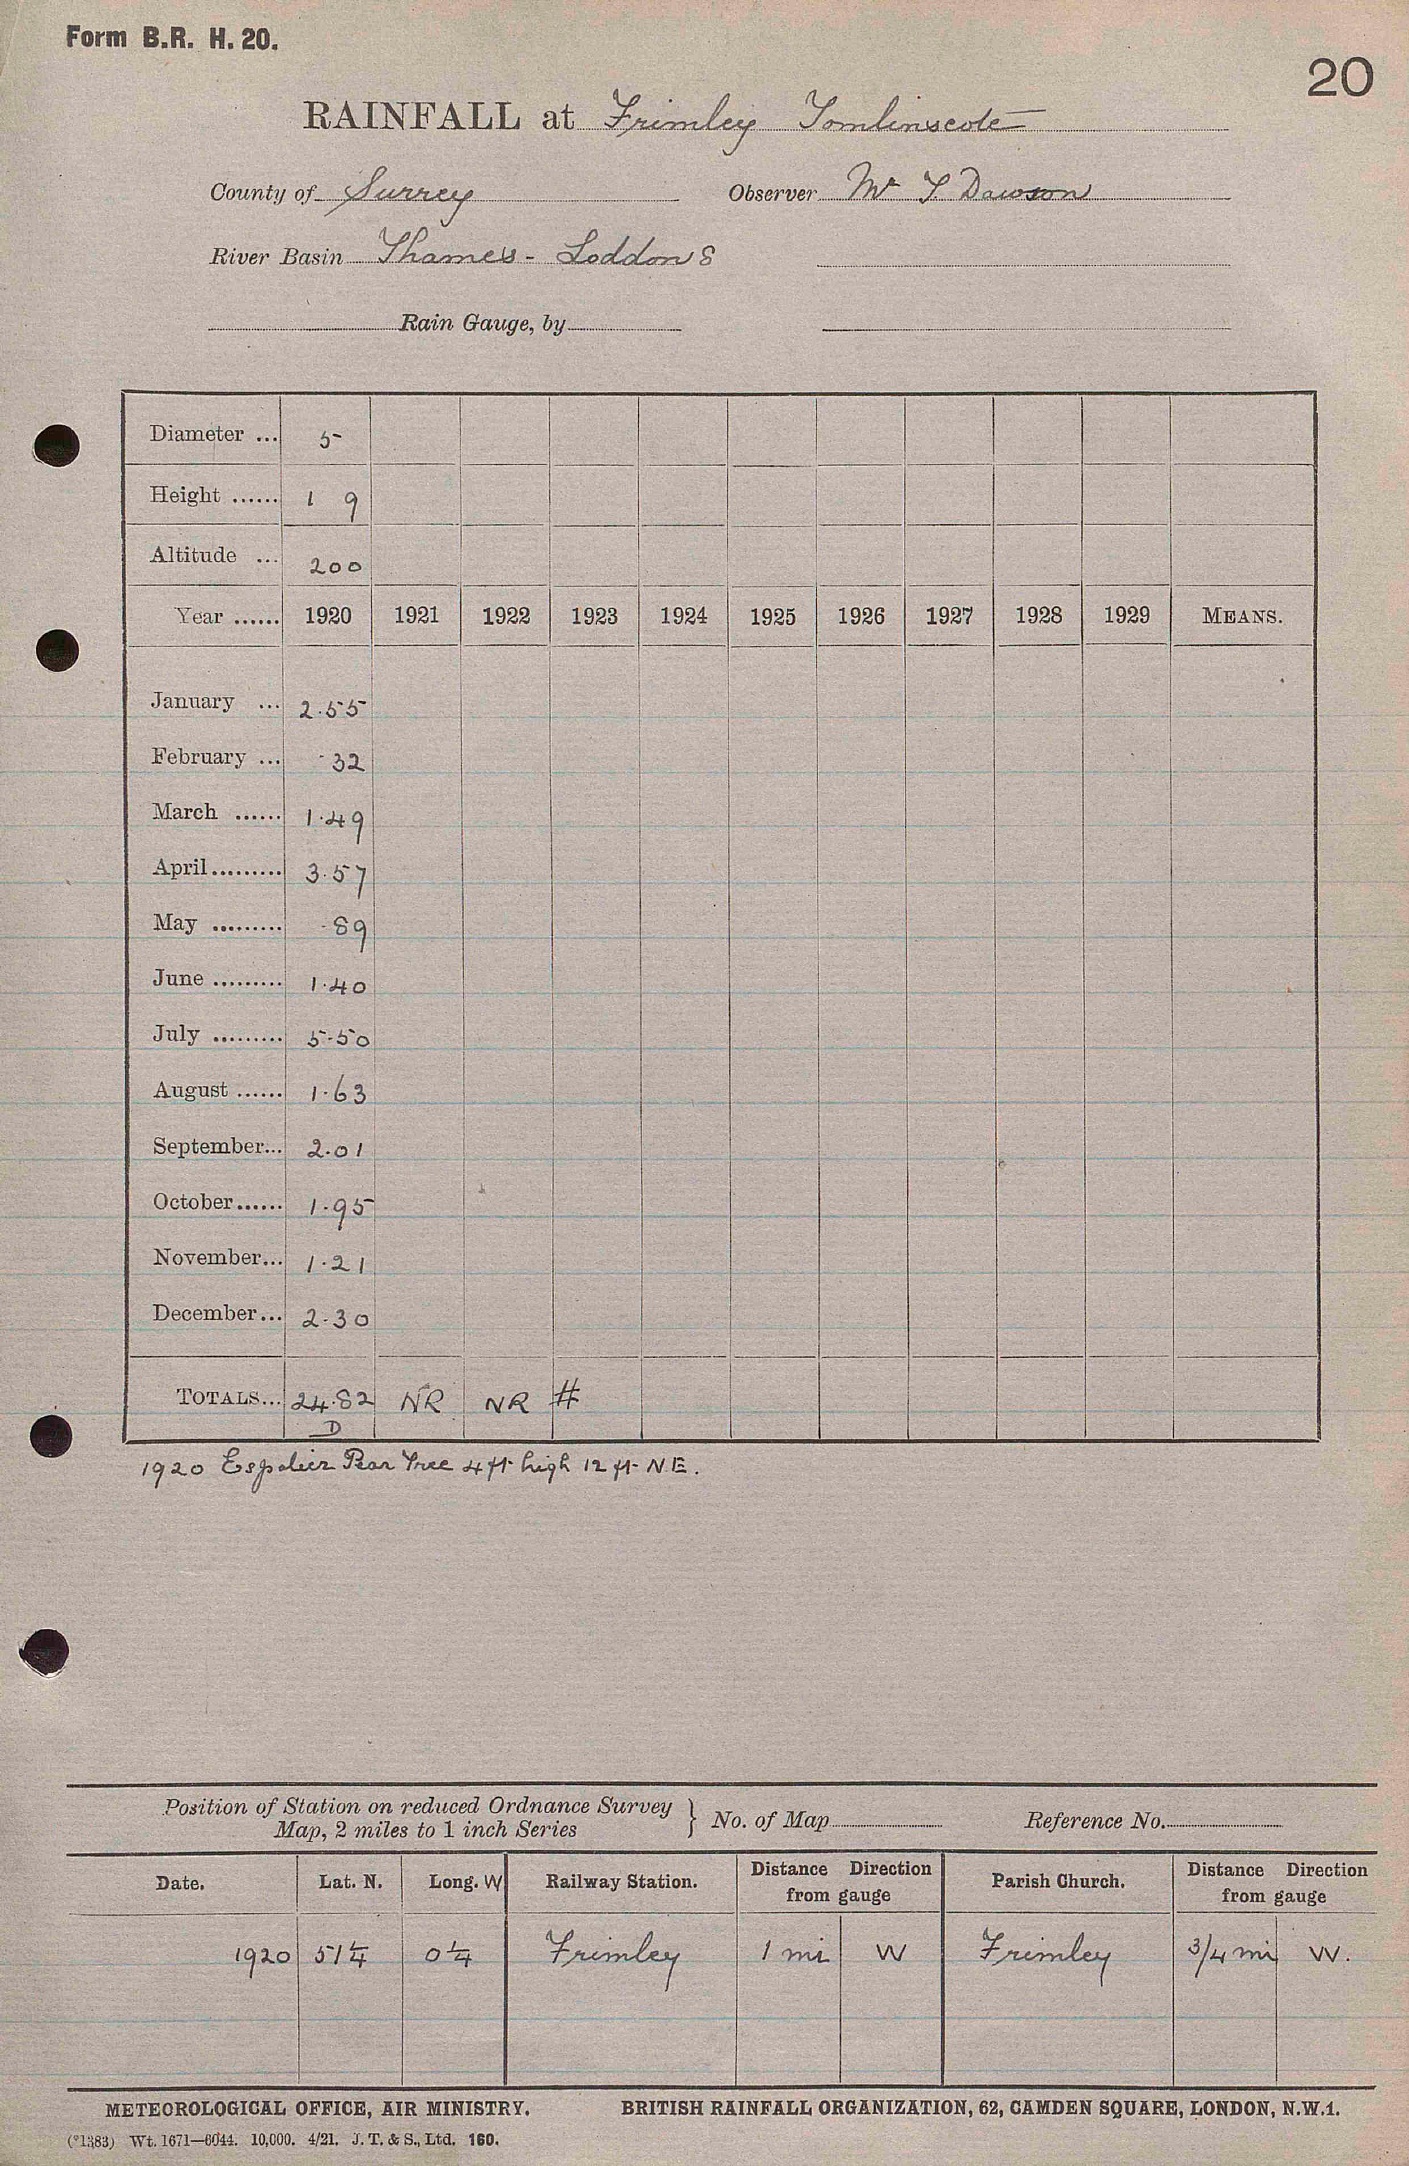 Form B.R. H. 20.
20
RAINFALL at Frimley Tomlinscote
County of Surrey Observer Mr T Dawson
River Basin Thames - Loddon S
Rain Gauge, by
Diameter ... 5
Height ...... 1 9
Altitude ... 200
Year ...... 1920 1921 1922 1923 1924 1925 1926 1927 1928 1929 MEANS.
January ... 2.55
February ... .32
March ...... 1.49
April......... 3.57
May ......... .89
June ......... 1.40
July ......... 5.50
August ...... 1.63
September... 2.01
October...... 1.95
November... 1.21
December... 2.30
TOTALS... 24.82 NR NR #
D
1920 Espalier Pear Tree 4 ft high 12 ft N.E.
Position of Station on reduced Ordnance Survey
Map, 2 miles to 1 inch Series } No. of Map Reference No.
Date. Lat. N. Long. W Railway Station. Distance Direction from gauge Parish Church. Distance Direction from gauge
1920 51 1/4 0 1/4 Frimley 1 mi W Frimley 3/4 mi W.
METEOROLOGICAL OFFICE, AIR MINISTRY. BRITISH RAINFALL ORGANIZATION, 62, CAMDEN SQUARE, LONDON, N.W.1.
(*1383) Wt. 1671—6044. 10,000. 4/21. J. T. & S., Ltd. 160.